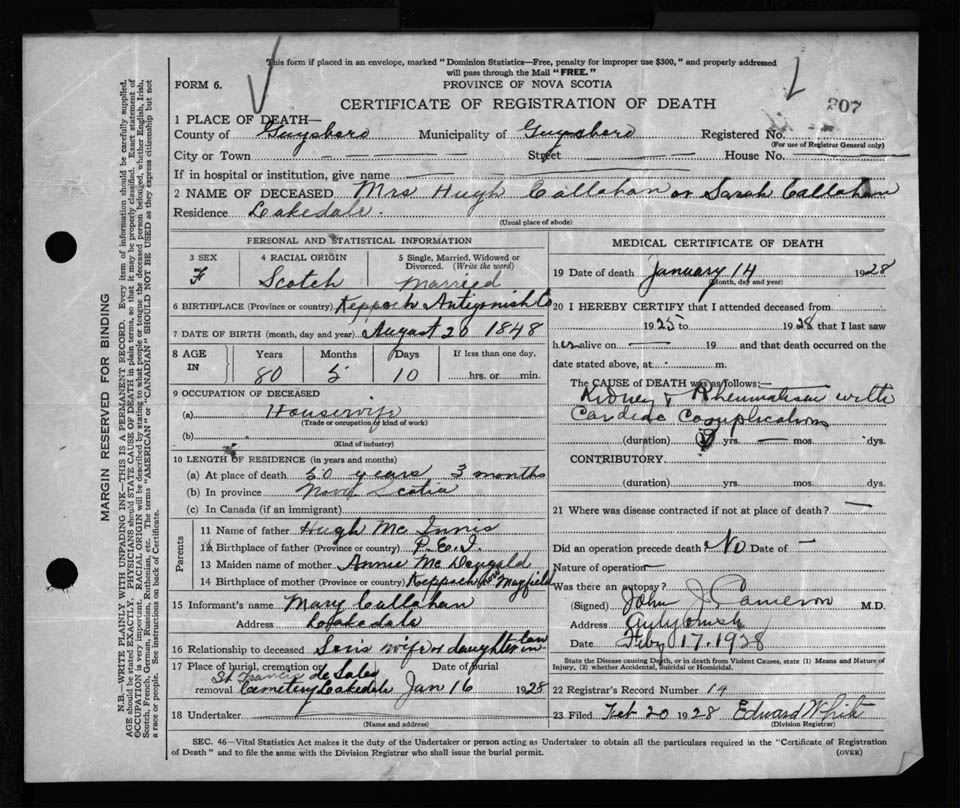 This form if placed in an envelope, marked "Dominion Statistics—Free, penalty for improper use $300," and properly addressed
will pass through the Mail "FREE."
FORM 6.
PROVINCE OF NOVA SCOTIA
207
CERTIFICATE OF REGISTRATION OF DEATH
1 PLACE OF DEATH—
County of Guysboro Municipality of Guysboro Registered No.
(For use of Registrar General only)
City or Town Street House No.
If in hospital or institution, give name
2 NAME OF DECEASED Mrs Hugh Callahan or Sarah Callahan
Residence Lakedale.
(Usual place of abode)
PERSONAL AND STATISTICAL INFORMATION
3 SEX
F
4 RACIAL ORIGIN
Scotch
5 Single, Married, Widowed or
Divorced. (Write the word)
Married
6 BIRTHPLACE (Province or country) Keppoch Antigonish Co
7 DATE OF BIRTH (month, day and year) August 20 1848
8 AGE
IN
Years
80
Months
5
Days
10
If less than one day,
hrs. or min.
9 OCCUPATION OF DECEASED
(a) Housewife
(Trade or occupation or kind of work)
(b)
(Kind of industry)
10 LENGTH OF RESIDENCE (in years and months)
(a) At place of death 50 years 3 months
(b) In province Nova Scotia
(c) In Canada (if an immigrant)
Parents
11 Name of father Hugh Mc Innis
12 Birthplace of father (Province or country) P.E.I.
13 Maiden name of mother Annie Mc Dougald
14 Birthplace of mother (Province or country) Keppoch Mayfield
15 Informant's name Mary Callahan
Address Lakedale
16 Relationship to deceased Son's wife or daughter in law
17 Place of burial, cremation or
removal St Francis de Sales
Cemetery Lakedale
Date of burial
Jan 16 1928
18 Undertaker
(Name and address)
MEDICAL CERTIFICATE OF DEATH
19 Date of death January 14 1928
(Month, day and year)
20 I HEREBY CERTIFY that I attended deceased from
1925 to 1928 that I last saw
her alive on — 19 and that death occurred on the
date stated above, at m.
The CAUSE OF DEATH was as follows:—
Kidney & Rheumatism with
Cardiac Complications
(duration) yrs. — mos. dys.
CONTRIBUTORY
(duration) yrs. mos. dys.
21 Where was disease contracted if not at place of death? —
Did an operation precede death? No Date of —
Nature of operation —
Was there an autopsy?
(Signed) John J. Cameron M.D.
Address Antigonish
Date Feby 17. 1928
State the Disease causing Death, or in death from Violent Causes, state (1) Means and Nature of
Injury, (2) whether Accidental, Suicidal or Homicidal.
22 Registrar's Record Number 14
23 Filed Feb 20 1928 Edward White
(Division Registrar)
SEC. 46—Vital Statistics Act makes it the duty of the Undertaker or person acting as Undertaker to obtain all the particulars required in the "Certificate of Registration
of Death" and to file the same with the Division Registrar who shall issue the burial permit. (OVER)
MARGIN RESERVED FOR BINDING
N.B.—WRITE PLAINLY WITH UNFADING INK—THIS IS A PERMANENT RECORD. Every item of information should be carefully supplied.
AGE should be stated EXACTLY. PHYSICIANS should STATE CAUSE OF DEATH in plain terms, so that it may be properly classified. Exact statement of
OCCUPATION is very important. RACIAL ORIGIN will be described by stating to what people or tongue the deceased person belonged, whether English, Irish,
Scotch, French, German, Russian, Ruthenian, etc. The terms "AMERICAN" or "CANADIAN" SHOULD NOT BE USED as they express citizenship but not
a race or people. See instructions on back of Certificate.